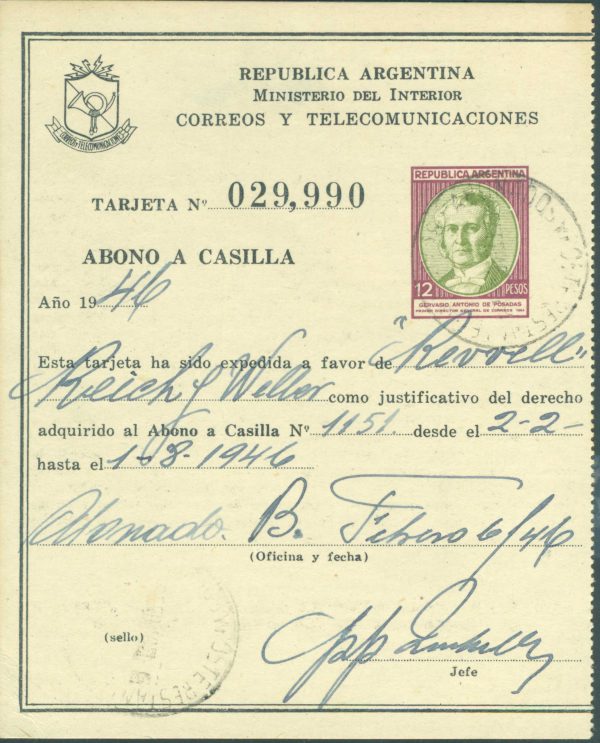 REPUBLICA ARGENTINA
MINISTERIO DEL INTERIOR
CORREOS Y TELECOMUNICACIONES
CORREOS Y TELECOMUNICACIONES
TARJETA Nº 029,990
REPUBLICA ARGENTINA
12 PESOS
GERVASIO ANTONIO DE POSADAS
PRIMER DIRECTOR GENERAL DE CORREOS
ABONO A CASILLA
Año 1946
Esta tarjeta ha sido expedida a favor de "Revvell"
Reich y Weller como justificativo del derecho
adquirido al Abono a Casilla Nº 1151. desde el 2-2-
hasta el 1-8-1946
Abonado. B. Febrero 6/46
(Oficina y fecha)
(sello)
Jefe